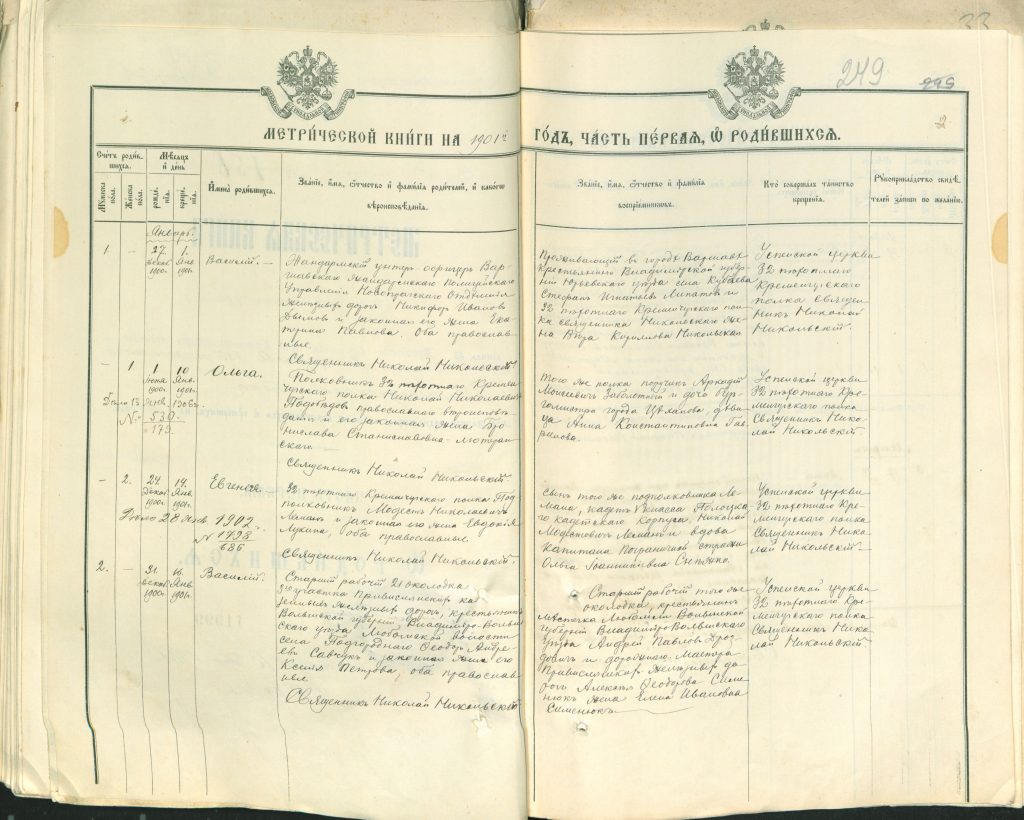 33
249
299
2
МЕТРИ́ЧЕСКОЙ КНИ́ГИ НА 1901й ГО́ДЪ, ЧА́СТЬ ПЕ́РВАЯ, Ѽ РОДИ́ВШИХСѦ.
Сче́тъ роди́вшихсѧ.
Мѣ́сѧцъ и де́нь
Му́жеска по́ла.
Же́нска по́ла.
рожде́нїѧ.
креще́нїѧ.
И́мена роди́вшихсѧ.
Зва́нїе, и́мѧ, ѻ́тчество и фами́лїѧ роди́телей, и како́гѡ
вѣроисповѣ́данїѧ.
Зва́нїе, и́мѧ, ѻ́тчество и фами́лїѧ
воспрїе́мниковъ.
Кто̀ соверша́лъ та́инство
креще́нїѧ.
Рꙋкоприкла́дство свидѣ́-
телей за́писи по жела́нїю.
Январь.
1
—
27.
декаб.
1900.
1.
Янв.
1901.
Василій. —
Жандармскій унтеръ-офицеръ Вар-
шавскаго Жандармскаго Полицейскаго
Управленія
Отдѣленія
желѣзныхъ дорогъ Никифоръ Ивановъ
Дымовъ и законная его жена Ека-
терина Павлова. Оба православ-
ные.
Священникъ Николай Никольскій.
Проживающій въ городѣ Варшавѣ
крестьянинъ Владимірской губер-
ніи Юрьевскаго уѣзда села
Игнатьевъ Липатовъ и
32 пѣхотнаго Кременчугскаго пол-
ка священника Никольскаго же-
на Вѣра Кириллова Никольская.
Успенской церкви
32 пѣхотнаго
Кременчугскаго
полка Священ-
никъ Николай
Никольскій.
—
1
1
1900.
10
Янв.
1901.
Дано 13 Янв. 1906 г.
№ 530.
179.
Ольга.
Полковникъ 32 пѣхотнаго Кремен-
чугскаго полка Николай Николаевичъ
православнаго вѣроисповѣ-
данія и его законная жена Бро-
нислава Станиславовна — лютеран-
скаго.
Священникъ Николай Никольскій.
Того же полка поручикъ Аркадій
Моисеевичъ Заболотній и дочь бур-
гомистра города Цѣханова, дѣви-
ца Анна Константиновна Гав-
рилова.
Успенской церкви
32 пѣхотнаго Кре-
менчугскаго полка
Священникъ Нико-
лай Никольскій.
—
2.
24.
Декаб.
1900.
14.
Янв.
1901.
Дано 28 Янв 1902 г.
№ 1498
686
Евгенія.
32 пѣхотнаго Кременчугскаго полка Под-
полковникъ Модестъ Николаевичъ
Леманъ и законная его жена Евдокія
Лукина, оба православные.
Священникъ Николай Никольскій.
Сынъ того же подполковника Ле-
мана, кадетъ V класса Полоцка-
го кадетскаго Корпуса, Николай
Модестовичъ Леманъ и вдова
Капитана Пограничной стражи
Ольга Іоанникіевна
Успенской церкви
32 пѣхотнаго Кре-
менчугскаго полка
Священникъ Нико-
лай Никольскій. —
2.
—
31.
декаб.
1900.
16.
Янв.
1901.
Василій.
Старшій рабочій 21 околодка
3го участка Привислинскихъ ка-
зенныхъ желѣзныхъ дорогъ, крестьянинъ
Волынской губерніи Владиміро-Волын-
скаго уѣзда Любомльской волости
села Подгороднаго Ѳеодоръ Андре-
евъ Савчукъ и законная жена его
Ксенія Петрова, оба православ-
ные
Священникъ Николай Никольскій
Старшій рабочій того же
околодка, крестьянинъ
мѣстечка Любомля Волынской
губерніи Владиміро-Волынскаго
уѣзда Андрей Павловъ Дроз-
довичъ и дорожнаго мастера
Привислинскихъ желѣзныхъ до-
рогъ Алексѣя Ѳеодорова Симе-
нюкъ жена Елена Ивановна
Сименюкъ
Успенской церкви
32 пѣхотнаго Кре-
менчугскаго полка
Священникъ Нико-
лай Никольскій